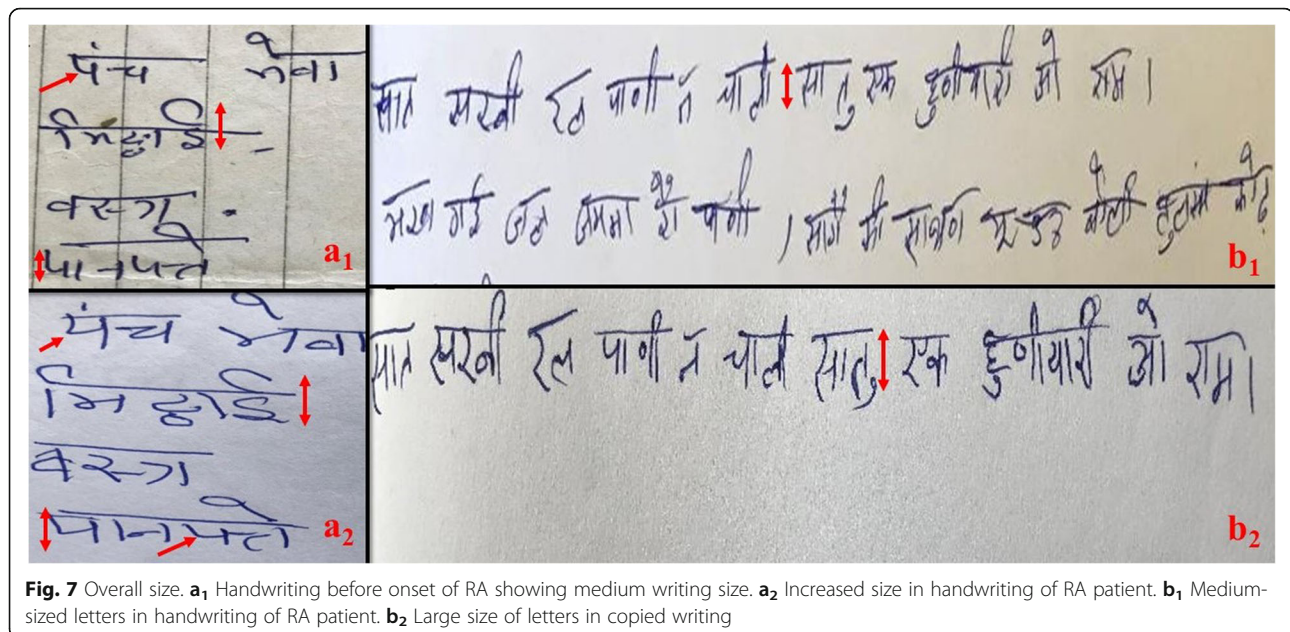 पंच मेवा
मिठाई
वस्त्र
पान पत्ते
a1
सात सखी रल पाणी न चाली सातु एक हुणीयारी ओ राम।
b1
पंच मेवा
मिठाई
वस्त्र
पान पत्ते
a2
सात सखी रल पाणी न चाली सातु एक हुणीयारी ओ राम।
b2
Fig. 7 Overall size. a1 Handwriting before onset of RA showing medium writing size. a2 Increased size in handwriting of RA patient. b1 Medium-
sized letters in handwriting of RA patient. b2 Large size of letters in copied writing